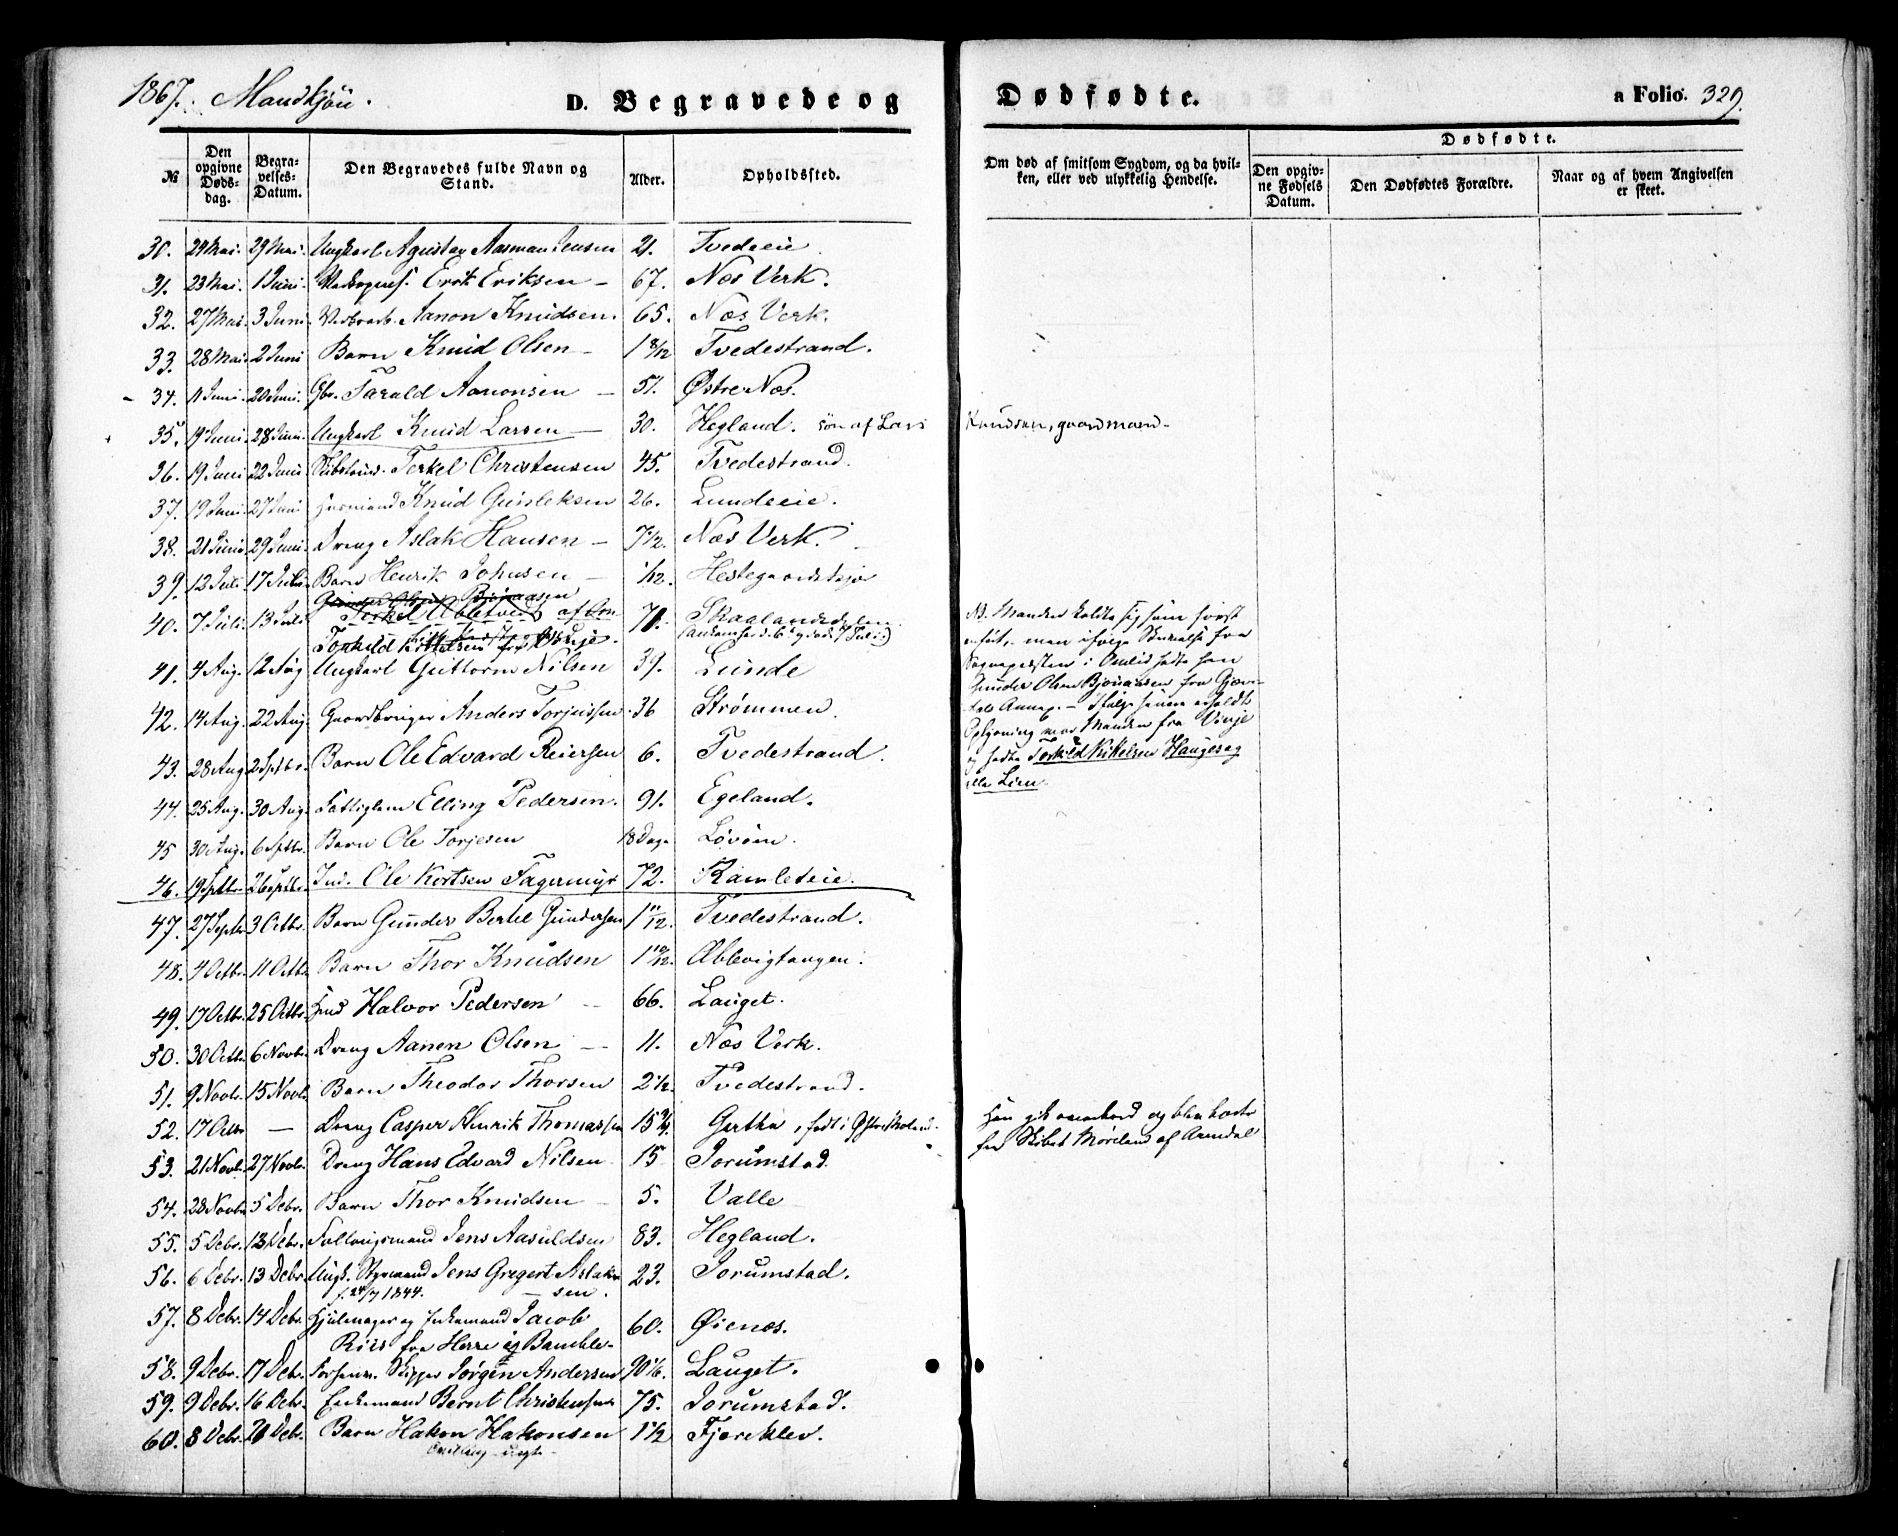 1867. Mandkjön.
D. Begravede og Dødfødte.
a Folio. 329.
№
Den opgivne Døds-dag.
Begra-velses-Datum.
Den Begravedes fulde Navn og Stand.
Alder.
Opholdssted.
Om død af smitsom Sygdom, og da hvil-ken, eller ved ulykkelig Hendelse.
Dødfødte.
Den opgiv-ne Fødsels Datum.
Den Dødfødtes Forældre.
Naar og af hvem Angivelsen er skeet.
30. 24 Mai. 29 Mai. Ungkarl Agustav Aasman Jensen 21. Tvedeeie
31. 23 Mai. 1 Juni. Erik Eriksen – 67. Næs Verk.
32. 27 Mai. 3 Juni. Aanon Knudsen. 65. Næs Verk.
33. 28 Mai. 2 Juni Barn Knud Olsen – 1 8/12 Tvedestrand.
34. 11 Juni. 20 Juni. Gbr. Tarald Aanonsen – 51. Østre Næs.
35. 19 Juni. 28 Juni. Ungkarl Knud Larsen – 30. Hegland. søn af Lars Knudsen, gaardmand.
36. 19 Juni 22 Juni Terkel Christensen 45. Tvedestrand.
37. 19 Juni. 27 Juni Huusmand Knud Gunleksen 26. Lundeeie.
38. 21 Juni. 29 Juni. Dreng Aslak Hansen – 7 1/2. Næs Verk.
39. 12 Juli. 17 Juli. Barn Henrik Johnsen – 1/12. Hestegaardskjær
40. 7 Juli. 13 Juli. Gunder Olsen Bjønaasen
Torkild Kittelsen fra Vinje. 71. Skaalandsdelen
NB. Manden kaldte sig som først
anført, men ifølge Skrivelse fra
Sognepræsten i Omlid hedte han
Gunder Olsen Bjønaasen fra Gjøv-
Manden fra Vinje
og hedte Torkild Kittelsen Haugesag
eller Lien.
41. 4 Aug. 12 Aug Ungkarl Guttorm Nilsen 39. Lunde
42. 14 Aug. 22 Aug. Gaardbruger Anders Torjussen 36 Strømmen.
43. 28 Aug. 2 Septbr. Barn Ole Edvard Reiersen 6. Tvedestrand.
44. 25 Aug. 30 Aug. Fattiglem Elling Pedersen. 91. Egeland.
45 30 Aug. 6 Septbr. Barn Ole Torjesen 18 Dage Løvøen.
46. 19 Septbr. 26 Septbr. Ind. Ole Kortsen Fagermyr 72. Ramleteie.
47. 27 Septbr 3 Octbr. Barn Gunder Bertel Gundersen 1 11/12. Tvedestrand.
48. 4 Octbr. 11 Octbr Barn Thor Knudsen 1 10/12. Æblevigtangen.
49. 17 Octbr. 25 Octbr. Halvor Pedersen – 66. Lauget.
50. 30 Octbr. 6 Novbr. Dreng Aanen Olsen – 11. Næs Verk.
51. 9 Novbr. 15 Novbr. Barn Theodor Thorsen 2 1/2. Tvedestrand.
52. 17 Octbr – Dreng Casper Henrik Thomassen 15 3/4. Gjerthe, født i Østre Moland.
Han gik overbord og blev borte
fra Skibet af Arendal
53. 21 Novbr. 27 Novbr. Dreng Hans Edvard Nilsen 15 Sorumstad.
54. 28 Novbr. 5 Debr. Barn Thor Knudsen – 5. Valle
55. 5 Debr. 13 Debr. Føllougsmand Jens Aasuldsen 83. Hegland.
56. 6 Debr. 13 Debr. Ungk. Styrmand Jens Gregert Aslak-
f. 24/7 1844. – sen. 23. Sorumstad.
57. 8 Debr. 14 Debr. Hjulmager og Enkemand Jacob
Riis fra Herre i Bamble. 60. Øienæs.
58. 9 Debr. 17 Debr. Forhenv. Skipper Jørgen Andersen 90 1/6. Lauget.
59. 9 Debr. 16 Debr. Enkemand Bernt Christensen 75. Sorumstad.
60. 8 Debr. 20 Debr. Barn Hakon Hakonsen 1 1/2 Fjæreklev.